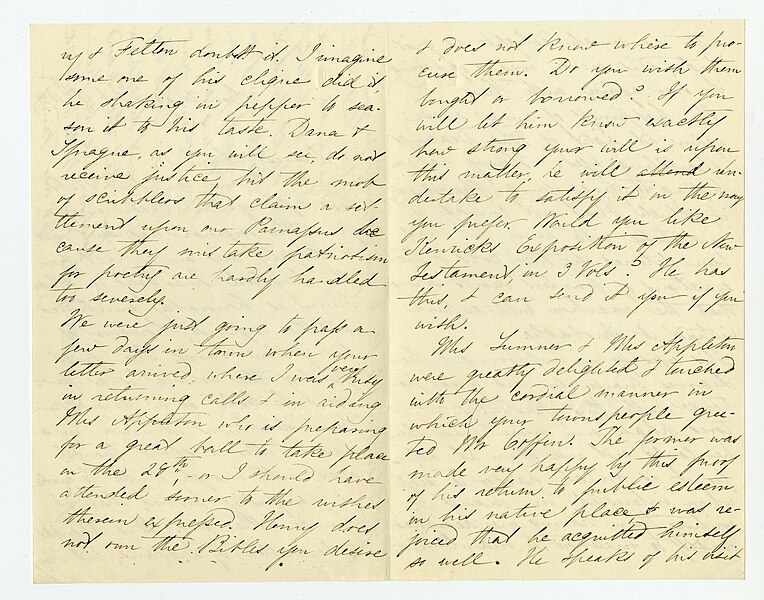 ry & Felton doubt it. I imagine
some one of his clique did it
he shaking in pepper to sea-
son it to his taste. Dana &
Sprague, as you will see, do not
receive justice, but the mob
of scribblers that claim a set
tlement upon our Parnassus be
cause they mistake patriotism
for poetry are hardly handled
too severely.
We were just going to pass a
few days in town when your
letter arrived, where I was very busy
in returning calls & in aiding
Mrs Appleton who is preparing
for a great ball to take place
on the 28th, or I should have
attended sooner to the wishes
therein expressed. Henry does
not own the Bibles you desire
& does not know where to pro-
cure them. Do you wish them
bought or borrowed? If you
will let him know exactly
how strong your will is upon
this matter, he will attend un-
dertake to satisfy it in the way
you prefer. Would you like
Kenricks Exposition of the New
Testament, in 3 Vols? He has
this, & can send it you if you
wish.
Mrs Sumner & Mrs Appleton
were greatly delighted & touched
with the cordial manner in
which your townspeople gree-
ted Mr Coffin. The former was
made very happy by this proof
of his return to public esteem
in his native place & was re-
joiced that he acquitted himself
so well. He speaks of his visit